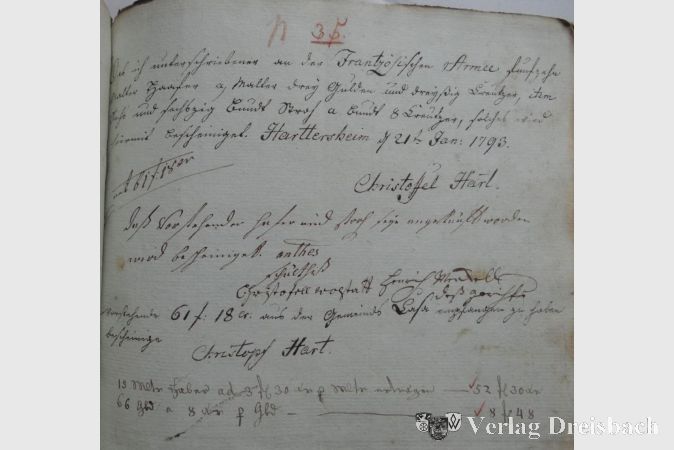 N 35.
Daß ich unterschriebener an der Frantzösischen Armee funfzehn
Malter Haafer a Malter drey Gulden und dreyßig Creutzer, dem
und sechszig Bundt Stroh a bundt 8 Creutzer, solches wird
hiermit bescheiniget. Harttersheim d 21t Jan: 1793.
61 f 18 xr
Christoffel Hart.
daß Vorstehender hafer und stroh seye angekauft worden
wird bescheiniget. anthes
schultheiß
Christofell Henrich
deß gerichts
Vorstehende 61 f: 18 xr. aus der Gemeinds Cassa empfangen zu haben
bescheinige
Christoph Hart.
15 Mltr Haber ad 3 fl 30 xr p Mltr — 52 fl 30 xr
66 Gbd a 8 xr p Gbd — 8 f 48
Verlag Dreisbach